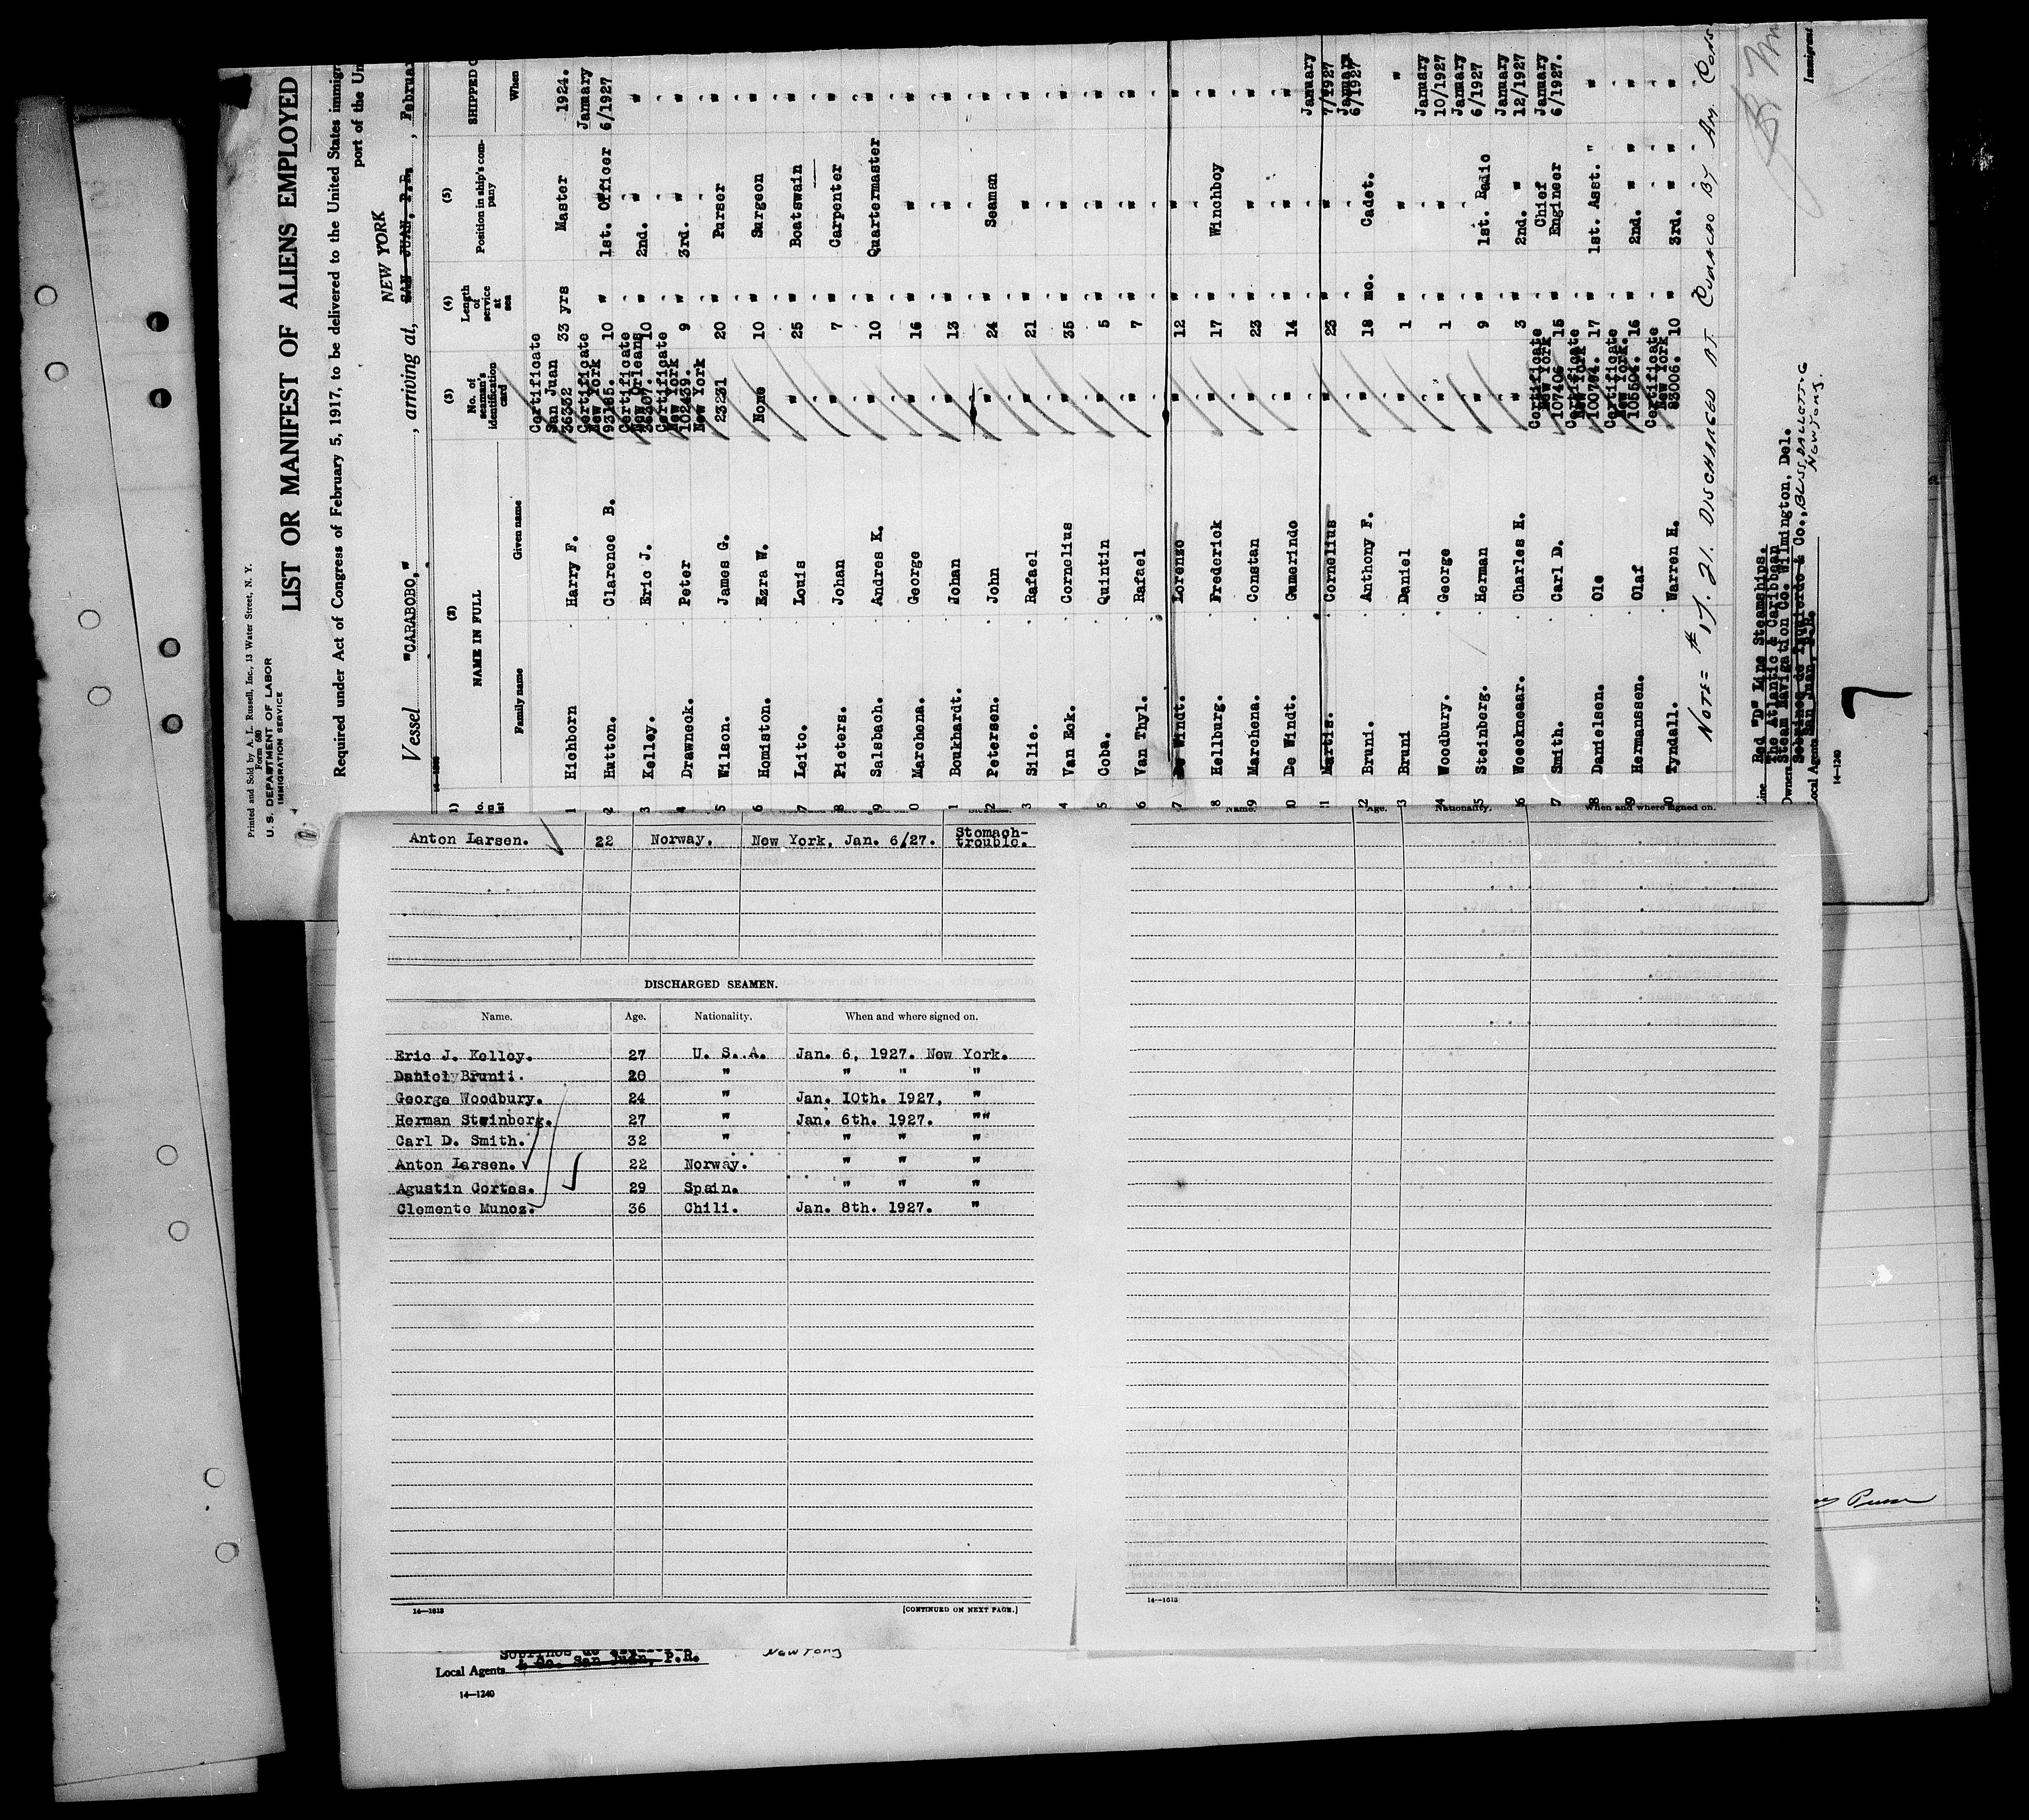 Printed and Sold by A. L. Russell, Inc., 13 Water Street, N. Y.
Form 680
U. S. DEPARTMENT OF LABOR
IMMIGRATION SERVICE
LIST OR MANIFEST OF ALIENS EMPLOYED
Required under Act of Congress of February 5, 1917, to be delivered to the United States immigr
port of the Un
NEW YORK
Vessel "CARABOBO," , arriving at, SAN JUAN, P.R. , Februar
(2) (3) (4) (5)
NAME IN FULL No. of seaman's identification card Length of service at sea Position in ship's company SHIPPED O
Family name Given name When
1 Hichborn Harry F. Certificate San Juan 36332 33 yrs Master 1924.
2 Hutton. Clarence B. Certificate New York 93185. 10 " 1st. Officer January 6/1927
3 Kelley. Eric J. Certificate New Orleans 36307. 10 " 2nd. " "
4 Drawneck. Peter Certificate New York 102439. 9 " 3rd. " "
5 Wilson. James G. New York 23231 20 " Purser "
6 Homiston. Ezra W. None 10 " Surgeon "
7 Leito. Louis " 25 " Boatswain "
8 Pieters. Johan " 7 " Carpenter "
9 Salsbach. Andres K. " 10 " Quartermaster "
0 Marchena. George " 16 " " "
1 Boukhardt. Johan " 13 " " "
2 Petersen. John " 24 " Seaman "
3 Silie. Rafael " 21 " " "
4 Van Eck. Cornelius " 35 " " "
5 Coba. Quintin " 5 " " "
6 Van Thyl. Rafael " 7 " " "
7 De Windt. Lorenzo " 12 " " "
8 Hellburg. Frederick " 17 " Winchboy "
9 Marchena. Constan " 23 " " "
0 De Windt. Gumerindo " 14 " " "
1 Martis. Cornelius " 23 " " January 7/1927
2 Bruni. Anthony F. " 18 mo. Cadet. January 6/1927
3 Bruni Daniel " 1 " " "
4 Woodbury. George " 1 " " January 10/1927
5 Steinberg. Herman " 9 " 1st. Radio January 6/1927
6 Woecknear. Charles H. " 3 " 2nd. " January 12/1927
7 Smith. Carl D. Certificate New York 107406 15 " Chief Engineer January 6/1927.
8 Danielsen. Ole Certificate New York 100794. 17 " 1st. Asst. " "
9 Hermanssen. Olaf Certificate New York. 105504. 16 " 2nd. " " "
0 Tyndall. Warren H. Certificate New York 83006. 10 " 3rd. " " "
NOTE= # 17. 21. DISCHARGED AT CURACAO BY AM CONS
Line Red "D" Line Steamships.
The Atlantic & Caribbean
Owners Steam Navigation Co. Wilmington, Del.
Sobrinos de Izquierdo & Co., BLISS, DALLETT & CO
Local Agents San Juan, P.R. NEW YORK.
Immigrant
14-1240
7
Anton Larsen. 22 Norway. New York, Jan. 6/27. Stomach-trouble.
DISCHARGED SEAMEN.
Name. Age. Nationality. When and where signed on.
Eric J. Kelley. 27 U. S. A. Jan. 6, 1927. New York.
Daniel Bruni. 20 " " " "
George Woodbury. 24 " Jan. 10th. 1927, "
Herman Steinberg. 27 " Jan. 6th. 1927. ""
Carl D. Smith. 32 " " " "
Anton Larsen. 22 Norway. " " "
Agustin Cortes. 29 Spain. " " "
Clemente Munoz. 36 Chili. Jan. 8th. 1927. "
14—1613 [CONTINUED ON NEXT PAGE.]
Name. Age. Nationality. When and where signed on.
14—1613
Sobrinos de Izquierdo New York
Local Agents & Co. San Juan, P.R.
14—1240